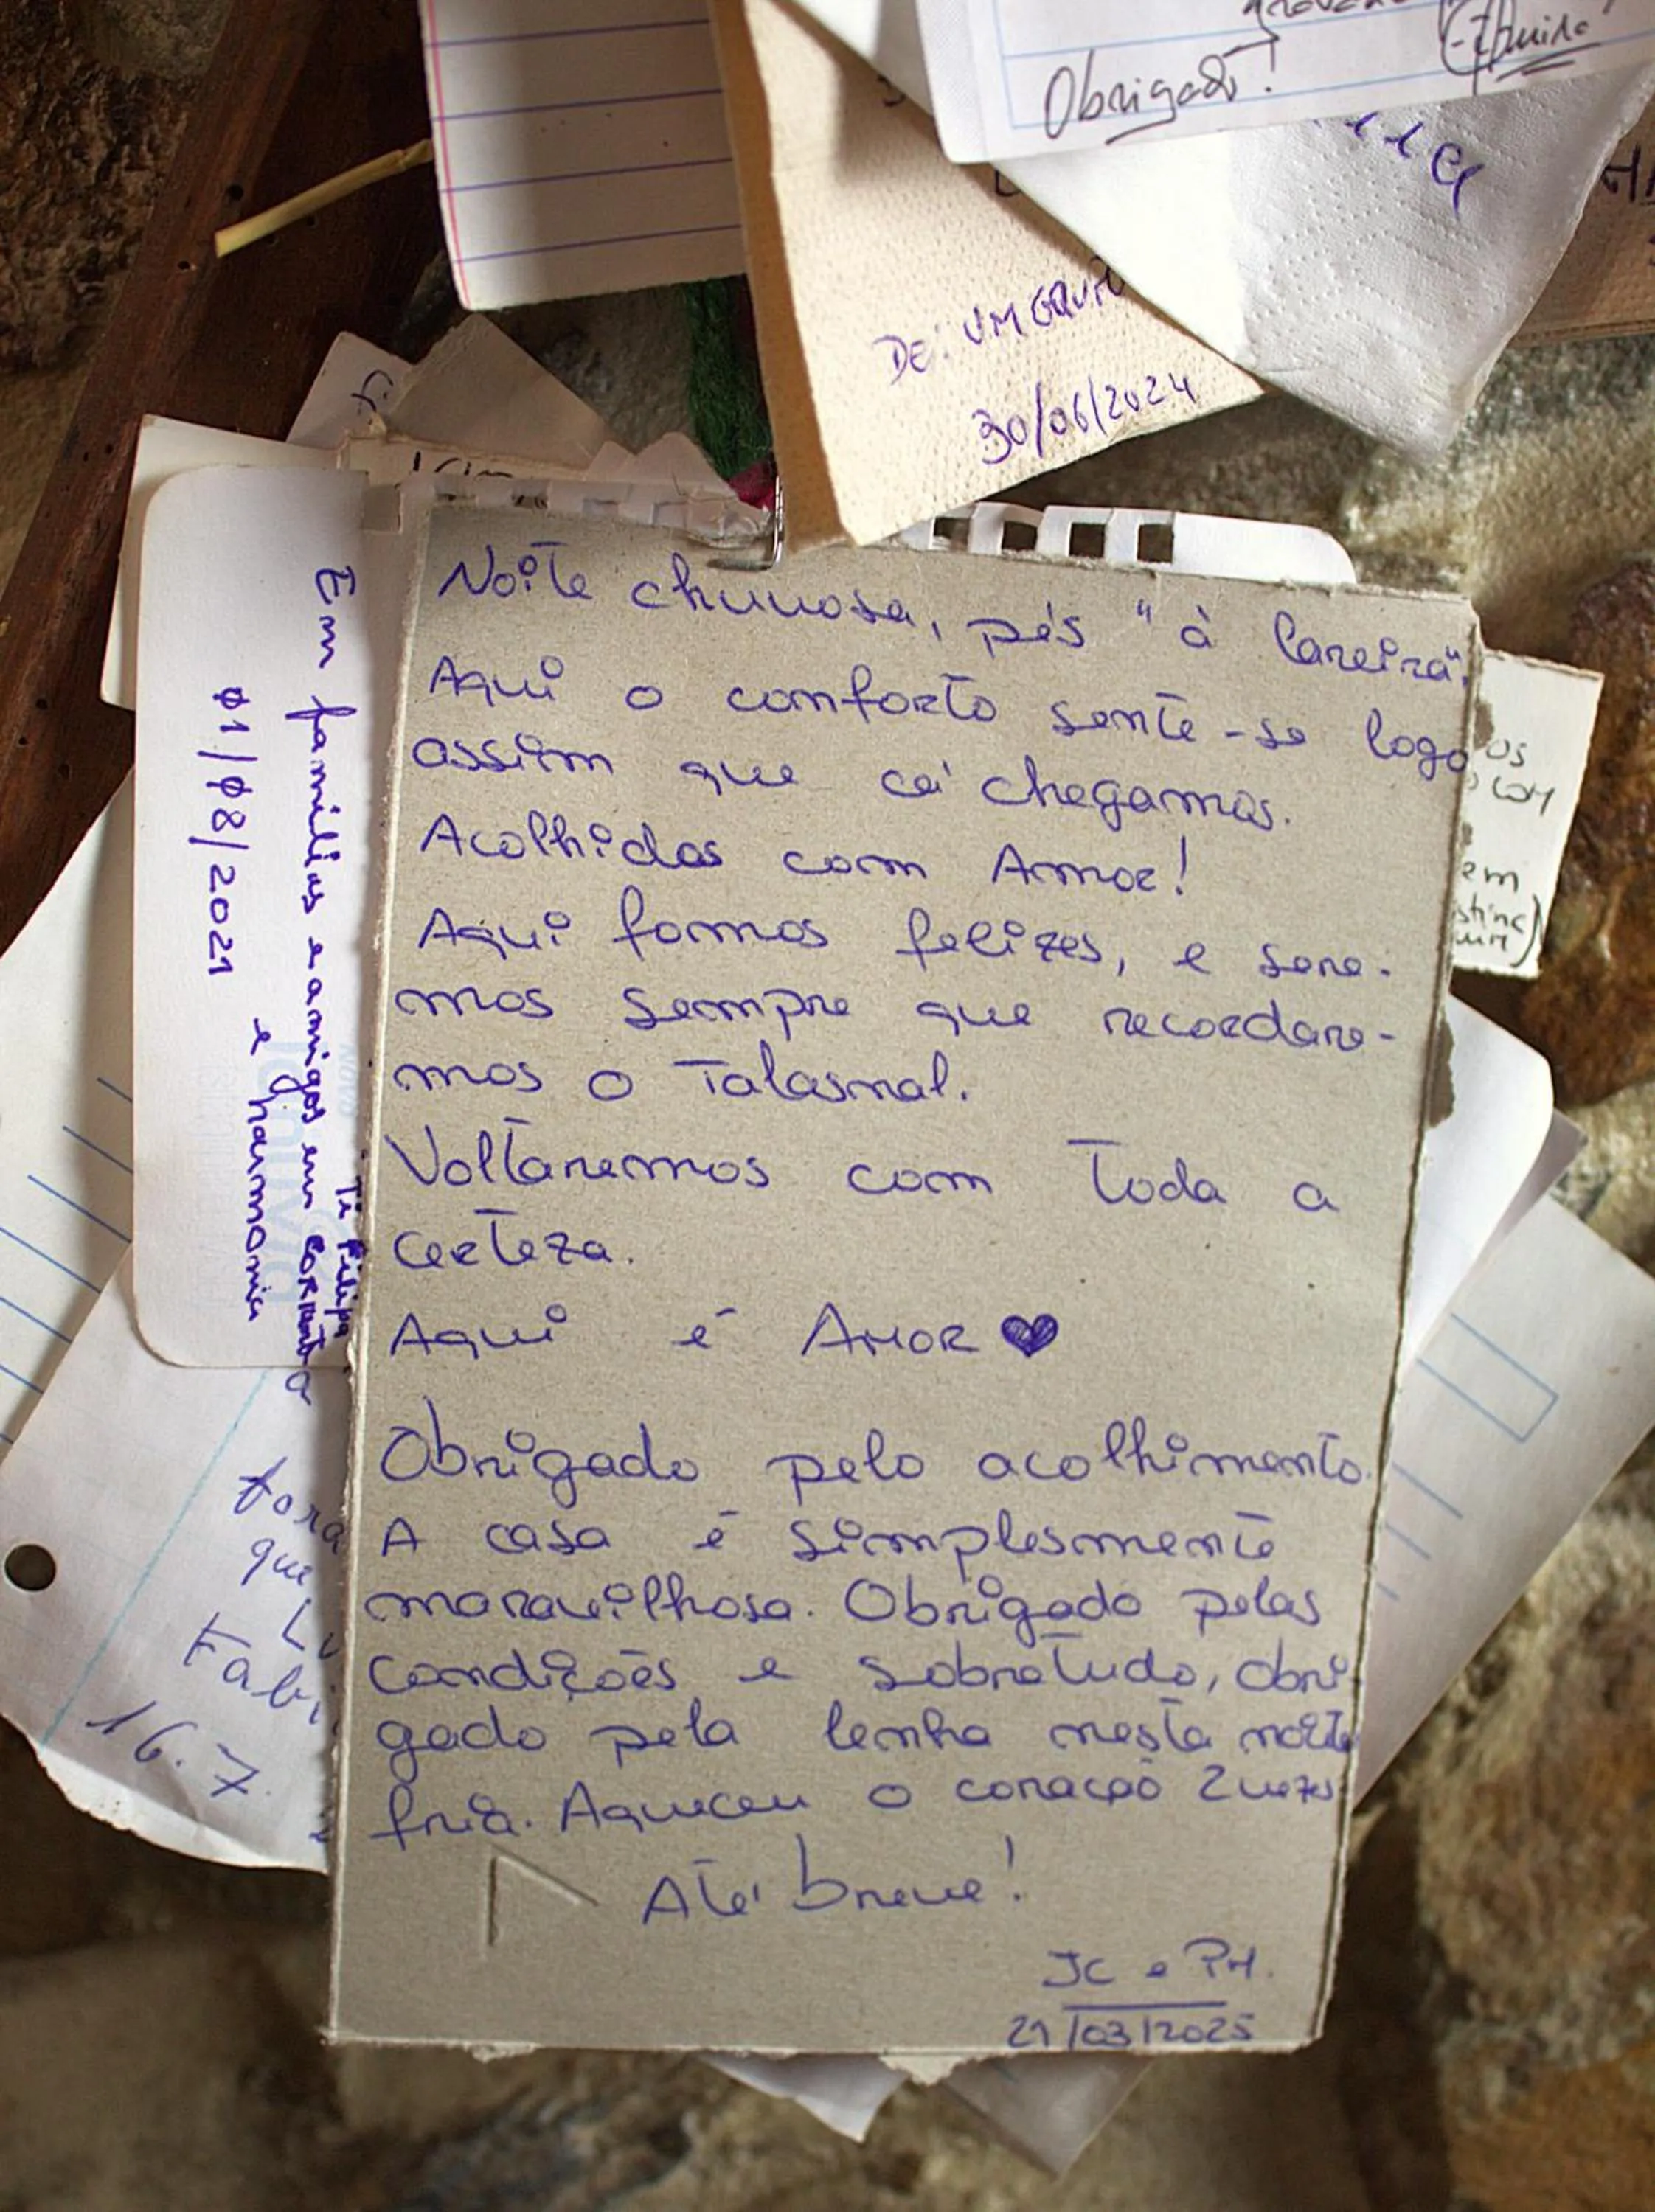 Obrigado!
DE: UM GRUPO
30/06/2024
Noite chuvosa, pés "à lareira".
Aqui o conforto sente-se logo
assim que cá chegamos.
Acolhidos com Amor!
Aqui fomos felizes, e sere-
mos sempre que recordare-
mos o Talasnal.
Voltaremos com toda a
certeza.
Aqui é AMOR ♥
Obrigado pelo acolhimento.
A casa é simplesmente
maravilhosa. Obrigado pelas
condições e sobretudo, obri-
gado pela lenha nesta noite
fria. Aqueceu o coração 2 vezes
Até breve!
JC e PM.
21/03/2025
Em famílias e amigos em
e harmonia
01/08/2021
Ti Filipa
os
com
em
fora
que
Fabi
16.7